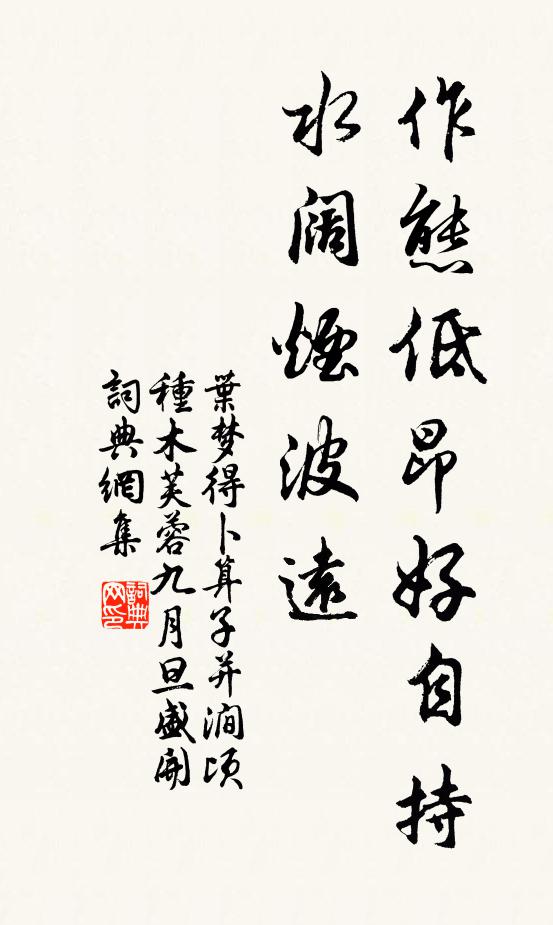 作態低昂好自持
水闊煙波遠
葉梦得卜算子并澗頃
種木芙蓉九月旦盛開
詞典網集
詞典网印